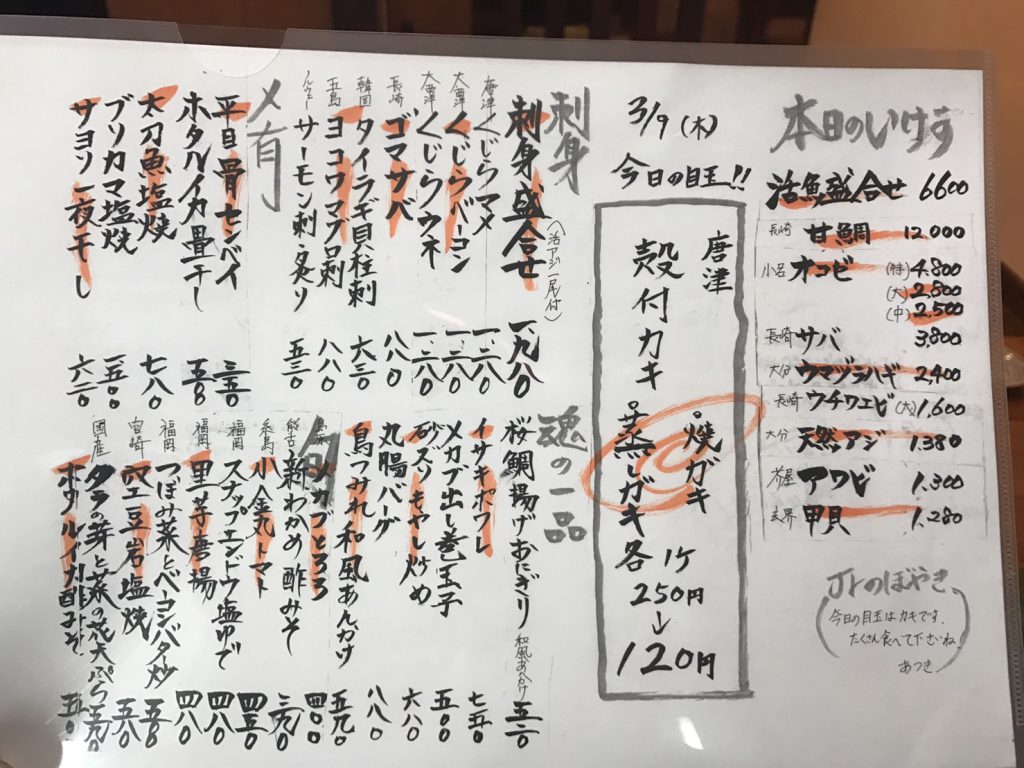 本日のいけす
活魚盛合せ 6600
長崎 甘鯛 12,000
オコゼ (特) 4,800
(大) 2,800
(中) 2,500
長崎 サバ 3,800
大分 ウマヅラハギ 2,400
長崎 ウチワエビ (大) 1,600
大分 天然アジ 1.380
芥屋 アワビ 1.300
玄界 甲貝 1.280
Jrのぼやき
今日の目玉はカキです、
たくさん食べて下さいね。
あつき
3/9 (木)
今日の目玉!!
唐津
殻付カキ
・焼ガキ
・蒸しガキ
各 1ケ
250円
↓
120円
刺身
刺身盛合せ (活アジ一尾付) 一、九八〇
唐津 くじらマメ 一、二八〇
太地 くじらベーコン 一、二八〇
くじらウネ 一、二八〇
長崎 ゴマサバ 八八〇
韓国 タイラギ貝柱刺 六三〇
五島 ヨコワマグロ刺 八八〇
ノルウェー サーモン刺・炙り 五三〇
〆有
平目骨センベイ 三五〇
ホタルイカ畳干し 五八〇
太刀魚塩焼 七八〇
ブリカマ塩焼 五八〇
サヨリ一夜干し 六三〇
魂の一品
桜鯛揚げおにぎり 和風あんかけ 五三〇
イサキポワレ 七五〇
メカブ出し巻玉子 五八〇
砂ズリもやし炒め 六八〇
丸腸バーグ 八八〇
鳥つみれ和風あんかけ 五九〇
旬
メカブとろろ 四〇〇
能古 新わかめ酢みそ 三九〇
糸島 小金丸トマト 四三〇
福岡 スナップエンドウ塩ゆで 四八〇
福岡 里芋唐揚 四八〇
福岡 つぼみ菜とベーコンバタ炒 五五〇
宮崎 ウスエ豆岩塩焼 五八〇
国産 タラ芽と菜の花天ぷら 五九〇
ホタルイカ酢みそ 五八〇